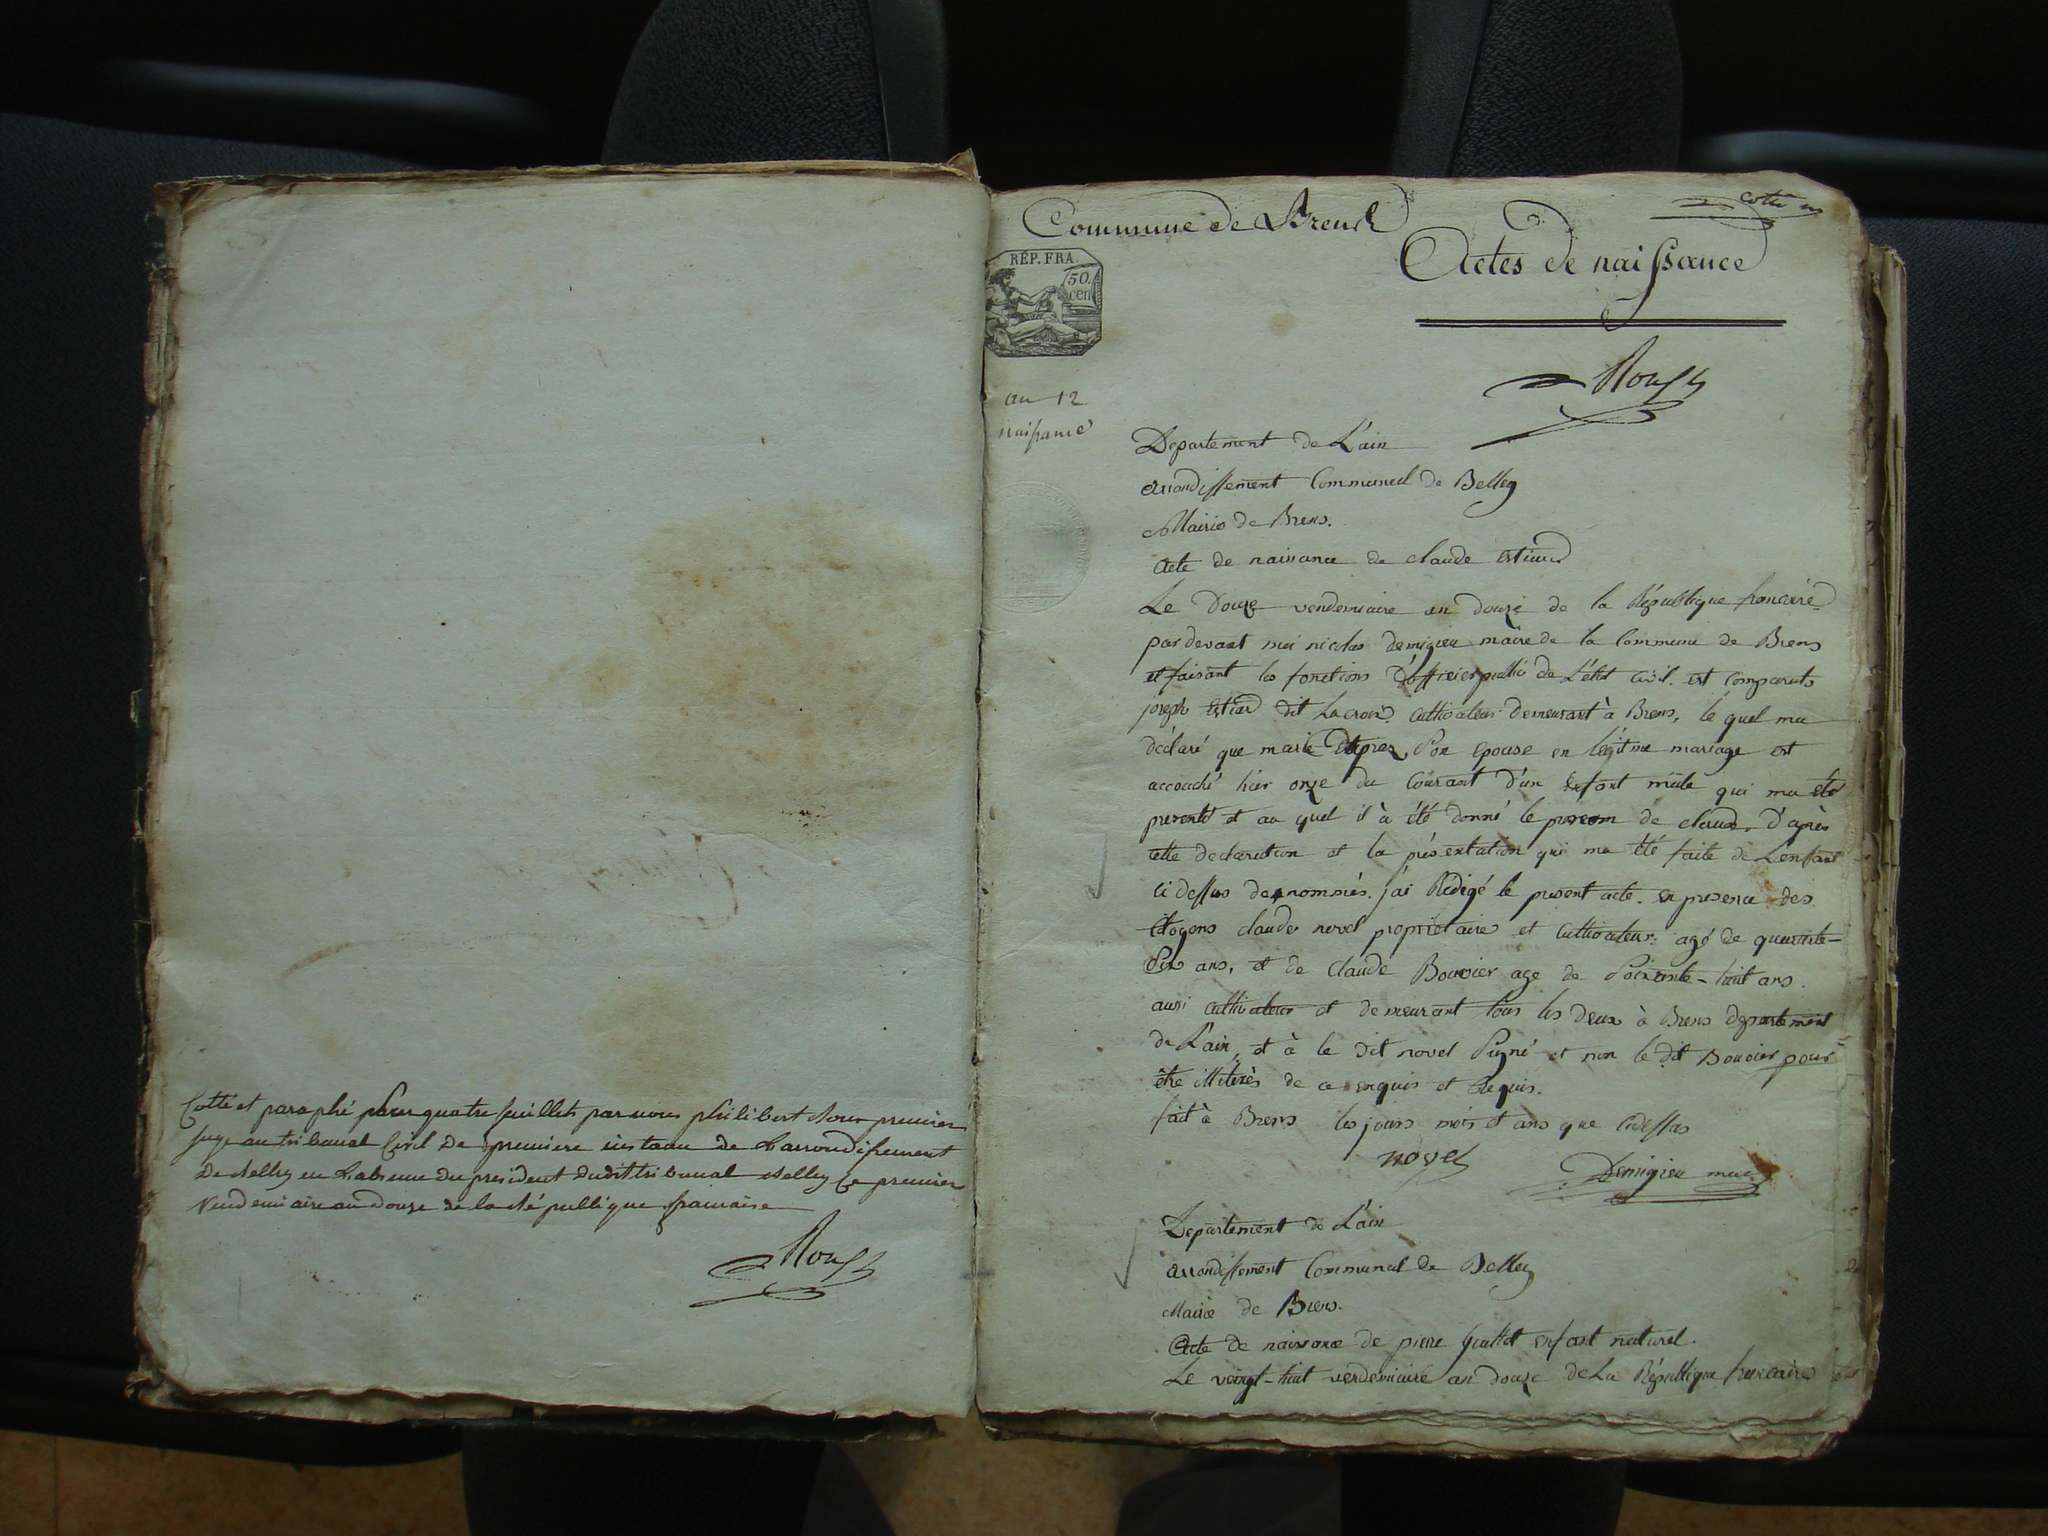 Cotté et paraphé pour quatre feuillets par nous philibert Roux premier
juge au tribunal Civil De premiere instance de Larrondissement
De Belley en Labsence Du president Dudit tribunal Belley Ce premier
Vendemiaire an Douze de la république francaise
Commune de Brens
Actes de naissance
RÉP. FRA.
50
cen
an 12
naissance
Departement de L'ain
arrondissement Communal de Belley
Mairie de Brens.
acte de naissance de claude
Le Douze vendemiaire an douze de la République francaise
par devant moi nicolas demigieu maire de la Commune de Brens
et faisant les fonctions D'officier public de L'état Civil. est comparuts
joseph dit Lacroix cultivateur demeurant à Brens, le quel ma
déclaré que marie Son epouse en légitime mariage est
accouché hier onze du Courant d'un Enfant mâle qui ma été
presenté et au quel il à été donné le prenom de claude, D'après
cette declaration et la présentation qui ma été faite de L'enfant
ci dessus denommés. j'ai Rédigé le present acte. en presence des
Citoyens claude novel proprietaire et cultivateur agé de quarante-
Six ans, et de claude Bouvier age de Soixante-huit ans.
aussi cultivateur et demeurant tous les deux à Brens departement
de L'ain, et à le dit novel Signé et non le dit Bouvier pour
être illiterés de ce enquis et Requis.
fait à Brens les jours mois et ans que cidessus
novel
Demigieu maire
Departement de L'ain
arrondissement Communal de Belley
Mairie de Brens.
Acte de naissance de pierre enfant naturel.
Le vingt-huit vendemiaire an douze de La République francaise